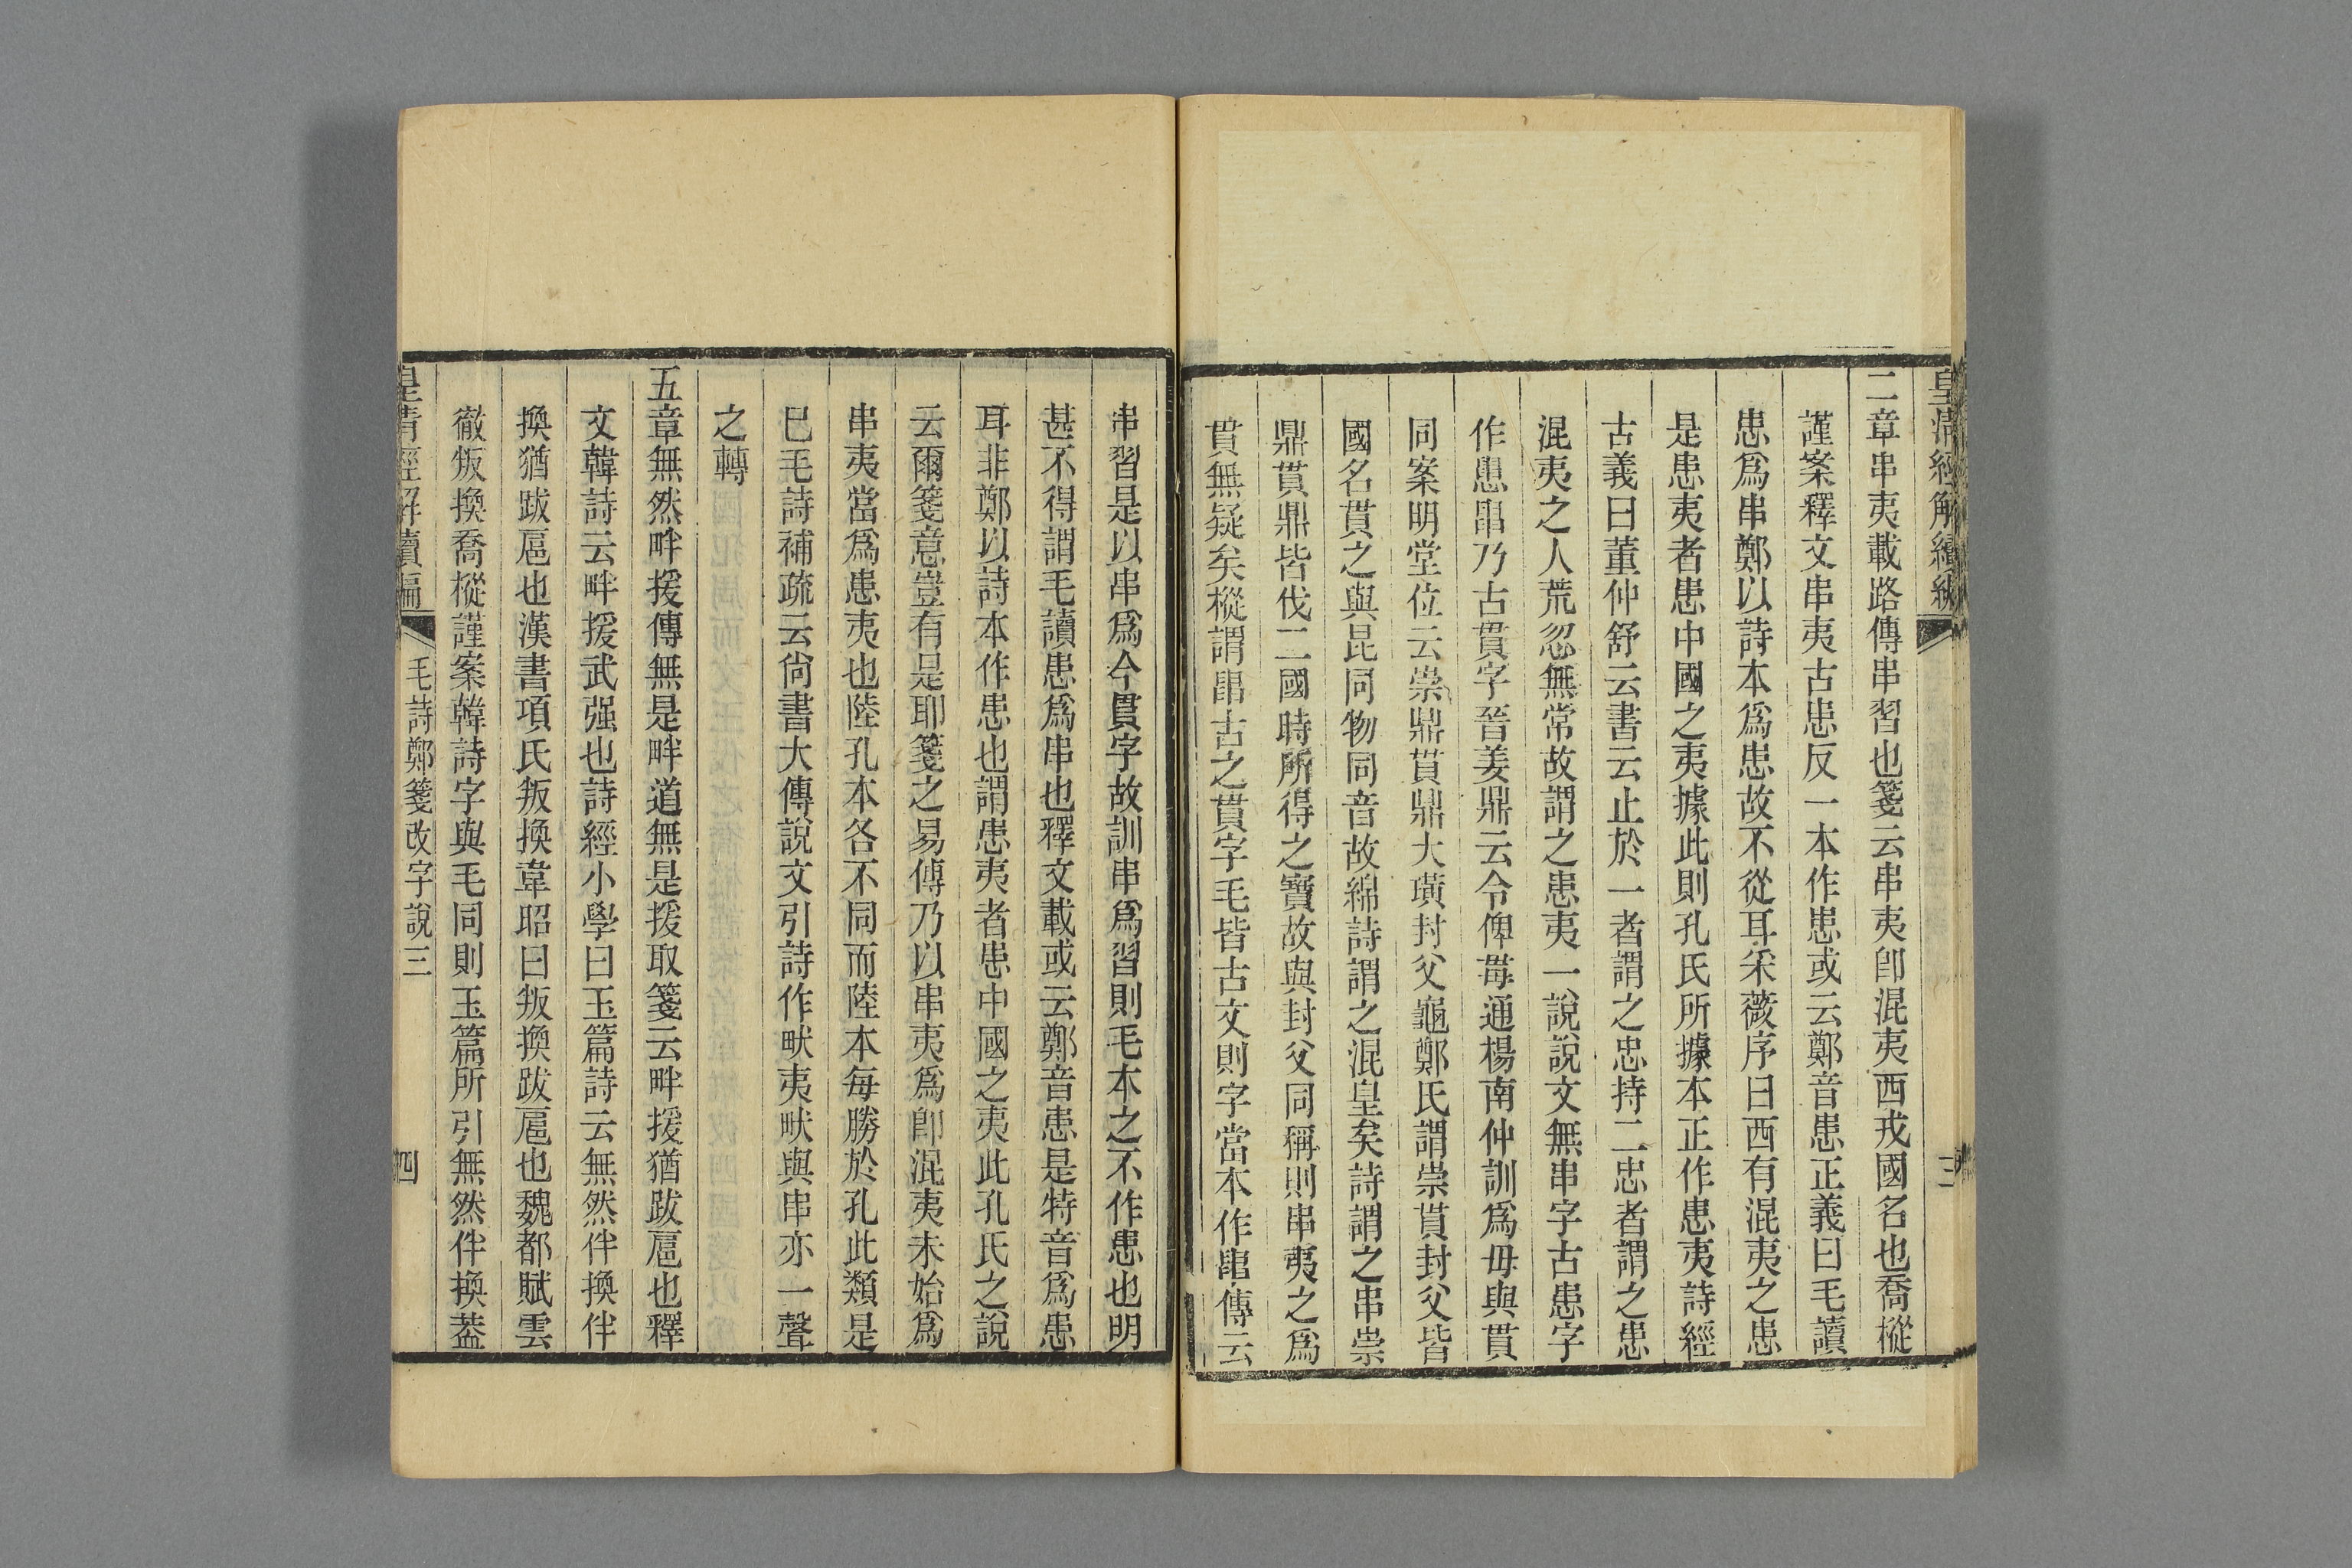 皇清經解續編
三
二章串夷載路傳串習也箋云串夷卽混夷西戎國名也喬樅
謹案釋文串夷古患反一本作患或云鄭音患正義曰毛讀
患爲串鄭以詩本爲患故不從耳采薇序曰西有混夷之患
是患夷者患中國之夷據此則孔氏所據本正作患夷詩經
古義曰董仲舒云書云止於一者謂之忠持二忠者謂之患
混夷之人荒忽無常故謂之患夷一說說文無串字古患字
作悬䍚乃古貫字晉姜鼎云令俾䍙通楊南仲訓爲毋與貫
同案明堂位云崇鼎貫鼎大璜封父龜鄭氏謂崇貫封父皆
國名貫之與昆同物同音故緜詩謂之混皇矣詩謂之串崇
鼎貫鼎皆伐二國時所得之寶故與封父同稱則串夷之爲
貫無疑矣樅謂䍚古之貫字毛皆古文則字當本作䍚傳云
串習是以串爲今貫字故訓串爲習則毛本之不作患也明
甚不得謂毛讀患爲串也釋文載或云鄭音患是特音爲患
耳非鄭以詩本作患也謂患夷者患中國之夷此孔氏之說
云爾箋意豈有是耶箋之易傳乃以串夷爲卽混夷未始爲
串夷當爲患夷也陸孔本各不同而陸本每勝於孔此類是
巳毛詩補疏云尙書大傳說文引詩作畎夷畎與串亦一聲
之轉
五章無然畔援傳無是畔道無是援取箋云畔援猶跋扈也釋
文韓詩云畔援武强也詩經小學曰玉篇詩云無然伴換伴
換猶跋扈也漢書項氏叛換韋昭曰叛換跋扈也魏都賦雲
徹叛換喬樅謹案韓詩字與毛同則玉篇所引無然伴換葢
皇清經解續編
毛詩鄭箋改字說三
四